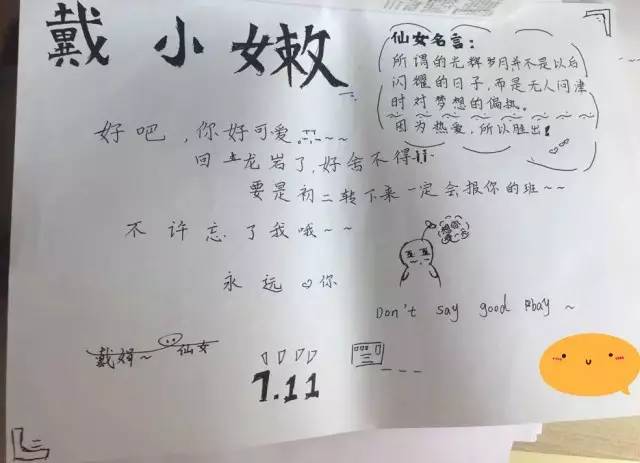 戴小嫩
仙女名言：
所谓的光辉岁月并不是以白
闪耀的日子，而是无人问津
时对梦想的偏执。
因为热爱，所以胜出！
好吧，你好可爱~~~
回龙岩了，好舍不得
要是初二转下来一定会报你的班~~
不许忘了我哦~~
想你
永远♡你
Don't say good bay ~
戴婿~ 仙女
7.11